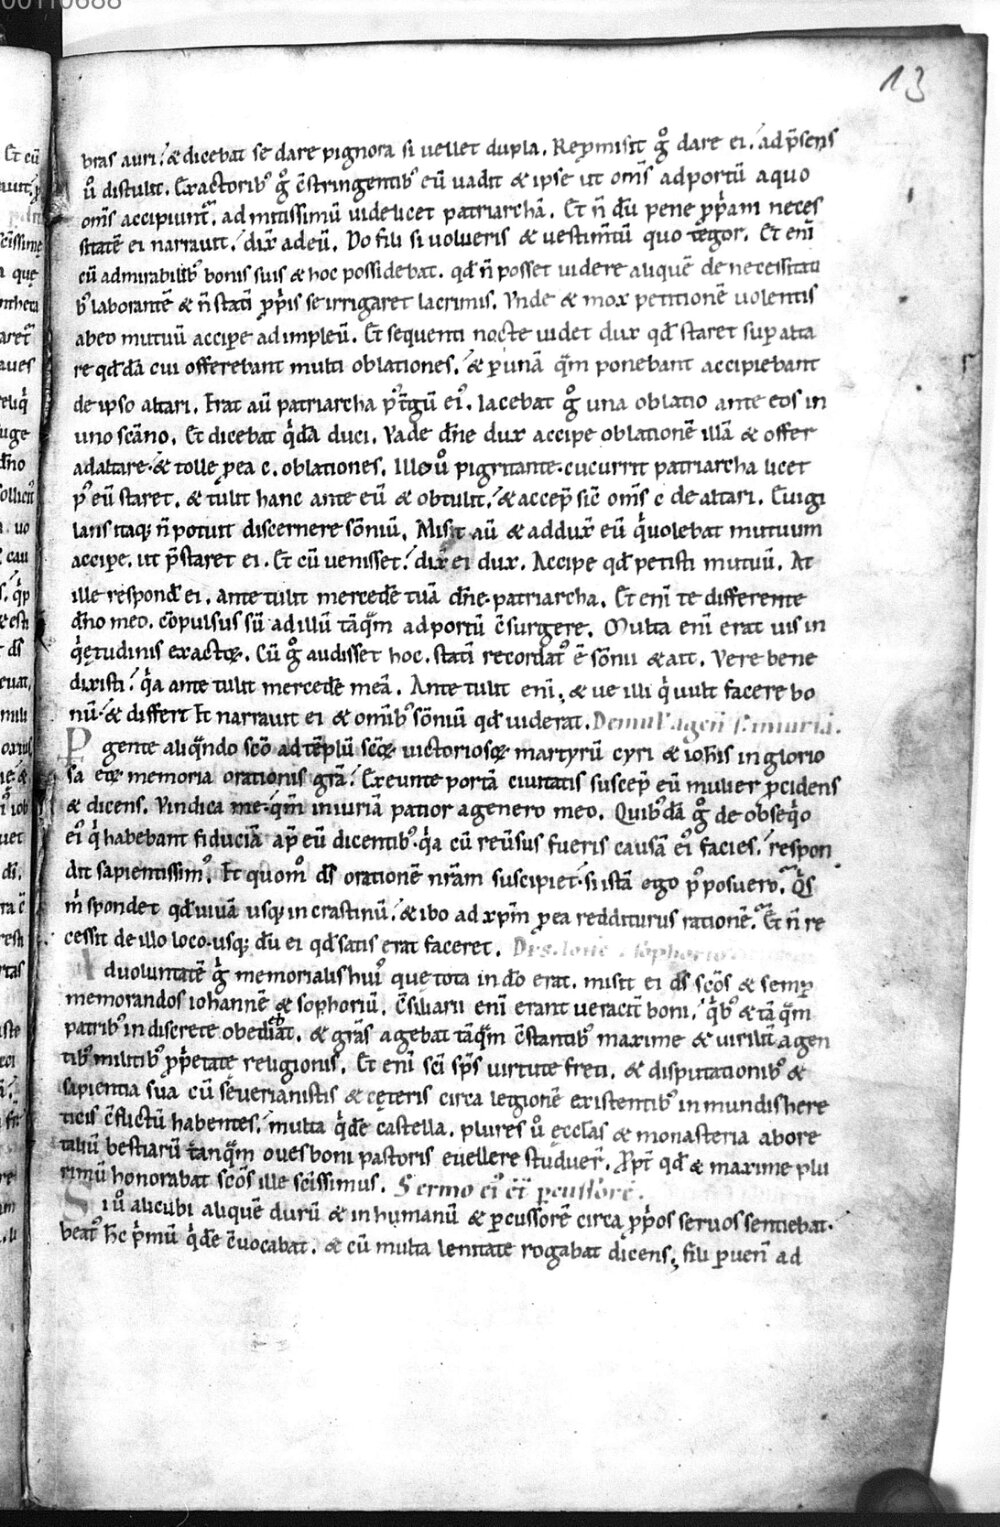 00110688
13
bras auri. & dicebat se dare pignora si uellet dupla. Repmisit g̊ dare ei. ad p̄sens
ů distulit. Exactorib' g̊ c̄stringentib' eū uadit & ipse ut om̄s ad portū a quo
om̄s accipiunt. ad mitissimū uidelicet patriarchā. Et ñ dū pene pp̄am neces
sitatē ei narrauit. dix̄ ad eū. Do fili si uolueris & uestim̄tū quo tegor. Et eni
cū admirabilib' bonis suis & hoc possidebat. qd̄ ñ posset uidere aliquē de necessitati
b' laborantē & ñ stati pp̄is se irrigaret lacrimis. Vnde & mox petitionē uolentis
ab eo mutuū accipe adimpleū. Et sequenti nocte uidet dux qd̄ staret sup alta
re qd̄dā cui offerebant multi oblationes. & p unā q̄m ponebant accipiebant
de ipso altari. Erat aū patriarcha p' t̄gū ei'. Iacebat g̊ una oblatio ante eos in
uno scāno. Et dicebat q̇dā duci. Vade dn̄e dux accipe oblationē illā & offer
ad altare. & tolle p ea c. oblationes. Illo ů pigritante. cucurrit patriarcha licet
p' eū staret. & tulit hanc ante eū & obtulit. & accep̄ sic̄ om̄s c de altari. Euigi
lans itaq; ñ potuit discernere sōniū. Misit aū & addux̄ eū q̇ uolebat mutuum
accipe. ut p̄staret ei. Et cū uenisset. dix̄ ei dux. Accipe qd̄ petisti mutuū. At
ille respond̄ ei. ante tulit mercedē tuā dn̄e patriarcha. Et eni te differente
dn̄o meo. cōpulsus sū ad illū tāq̄m ad portū c̄surgere. Multa eni erat uis in
q̇etudinis exactoꝝ. Cū g̊ audisset hoc. stati recordat' ē sōnii & ait. Vere bene
dixisti. q̇a ante tulit mercedē meā. Ante tulit eni, & ue illi q̇ uult facere bo
nū & differt Et narrauit ei & omīb' sōniū qd̄ uiderat.
P gente aliqn̄do scō ad tēplū scōꝝ uictoriosoꝝ martyrū cyri & ioh̄is in glorio
sa eoꝝ memoria orationis grā. Exeunte portā ciuitatis suscep̄ eū mulier pcidens
& dicens. Vindica me. qm̄ iniuriā patior a genero meo. Quib'dā g̊ de obseq̇o
ei' q̇ habebant fiduciā ap̄ eū dicentib'. q̇a cū reūsus fueris causā ei' facies. respon
dit sapientissim'. Et quom̊ ds̄ orationē nr̄am suscipiet. si istā ego p'posuero. Q̇s
m̄ spondet qd̄ uiuā usq; in crastinū. & ibo ad xp̄m p ea redditurus rationē. Et ñ re
cessit de illo loco. usq; dū ei qd̄ satis erat faceret.
A d uoluntatē g̊ memorialis hui' que tota in dō erat. misit ei ds̄ scōs & semp̄
memorandos iohannē & sophoniū. c̄siliarii eni erant ueracit̄ boni. q̇b' & tāq̄m
patrib' indiscrete obediebat. & grās agebat tāq̄m c̄stantib' maxime & uirilit̄ agen
tib' militib' p p̄etate religionis. Et eni sc̄i sp̄s uirtute freti. & disputationib' &
sapientia sua cū seuerianistis & cęteris circa legionē existentib' inmundis here
ticis c̄flictū habentes. multa q̇dē castella. plures ů ecclas & monasteria abore
taliū bestiarū tanq̄m oues boni pastoris euellere studuer̄. Ppt̄ qd̄ & maxime plu
rimū honorabat scōs ille sc̄issimus. Sermo ei'
S i ů alicubi aliquē durū & inhumanū & pcussorē circa pp̄os seruos sentiebat.
beat' hic p̄mū q̇dē c̄uocabat. & cū multa lenitate rogabat dicens, fili puen̄ ad